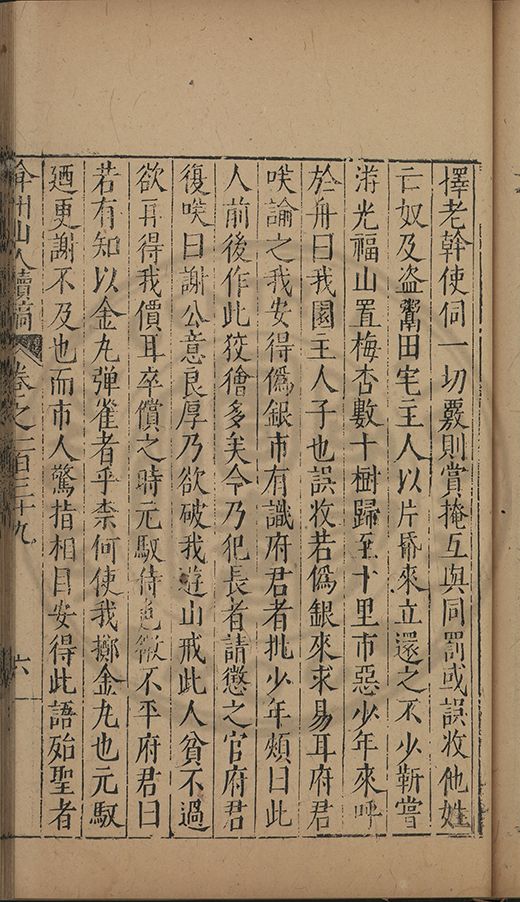 擇老幹使伺一切覈則賞掩互與同罰或誤收他姓
亡奴及盜鬻田宅主人以片昏來立還之不少靳嘗
游光福山置梅杏數十樹歸至十里市惡少年來呼
於舟曰我園主人子也誤收若僞銀來求易耳府君
咲論之我安得僞銀市有識府君者批少年頰曰此
人前後作此狡獪多矣今乃犯長者請懲之官府君
復咲曰謝公意良厚乃欲破我遊山戒此人貧不過
欲再得我價耳卒償之時元馭侍色微不平府君曰
若有知以金丸彈雀者乎柰何使我擲金丸也元馭
廼更謝不及也而市人驚指相目安得此語殆聖者
弇州山人續稿 卷之一百三十九 六